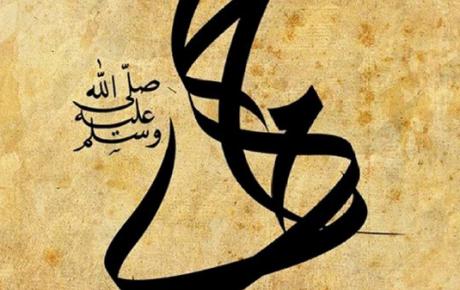 محمد
صلّى الله
عليه
وسلم